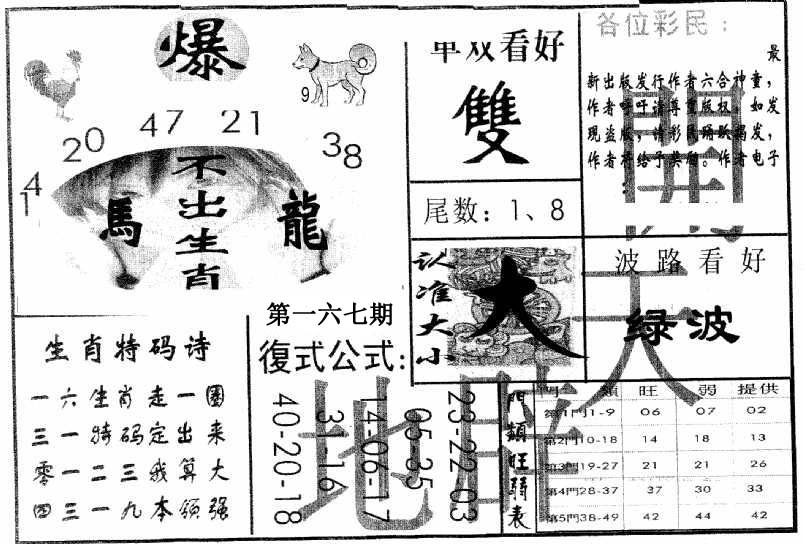 爆
9
41 20 47 21 38
不出生肖
馬
龍
单双看好
雙
尾数：1、8
各位彩民：
最
新出版发行作者六合神童，
作者呼吁请尊重版权，如发
现盗版，请彩民踊跃揭发，
作者将给予奖励。作者电子
：
認准大小
大
波路看好
绿波
第一六七期
復式公式：
40-20-18
31-16
14-06-17
05-35
23-22-03
生肖特码诗
一六生肖走一圈
三一特码定出来
零一二三我算大
四三一九本领强
門類旺弱表
門類 旺 弱 提供
第1門1-9 06 07 02
第2門10-18 14 18 13
第3門19-27 21 21 26
第4門28-37 37 30 33
第5門38-49 42 44 42
開天
地